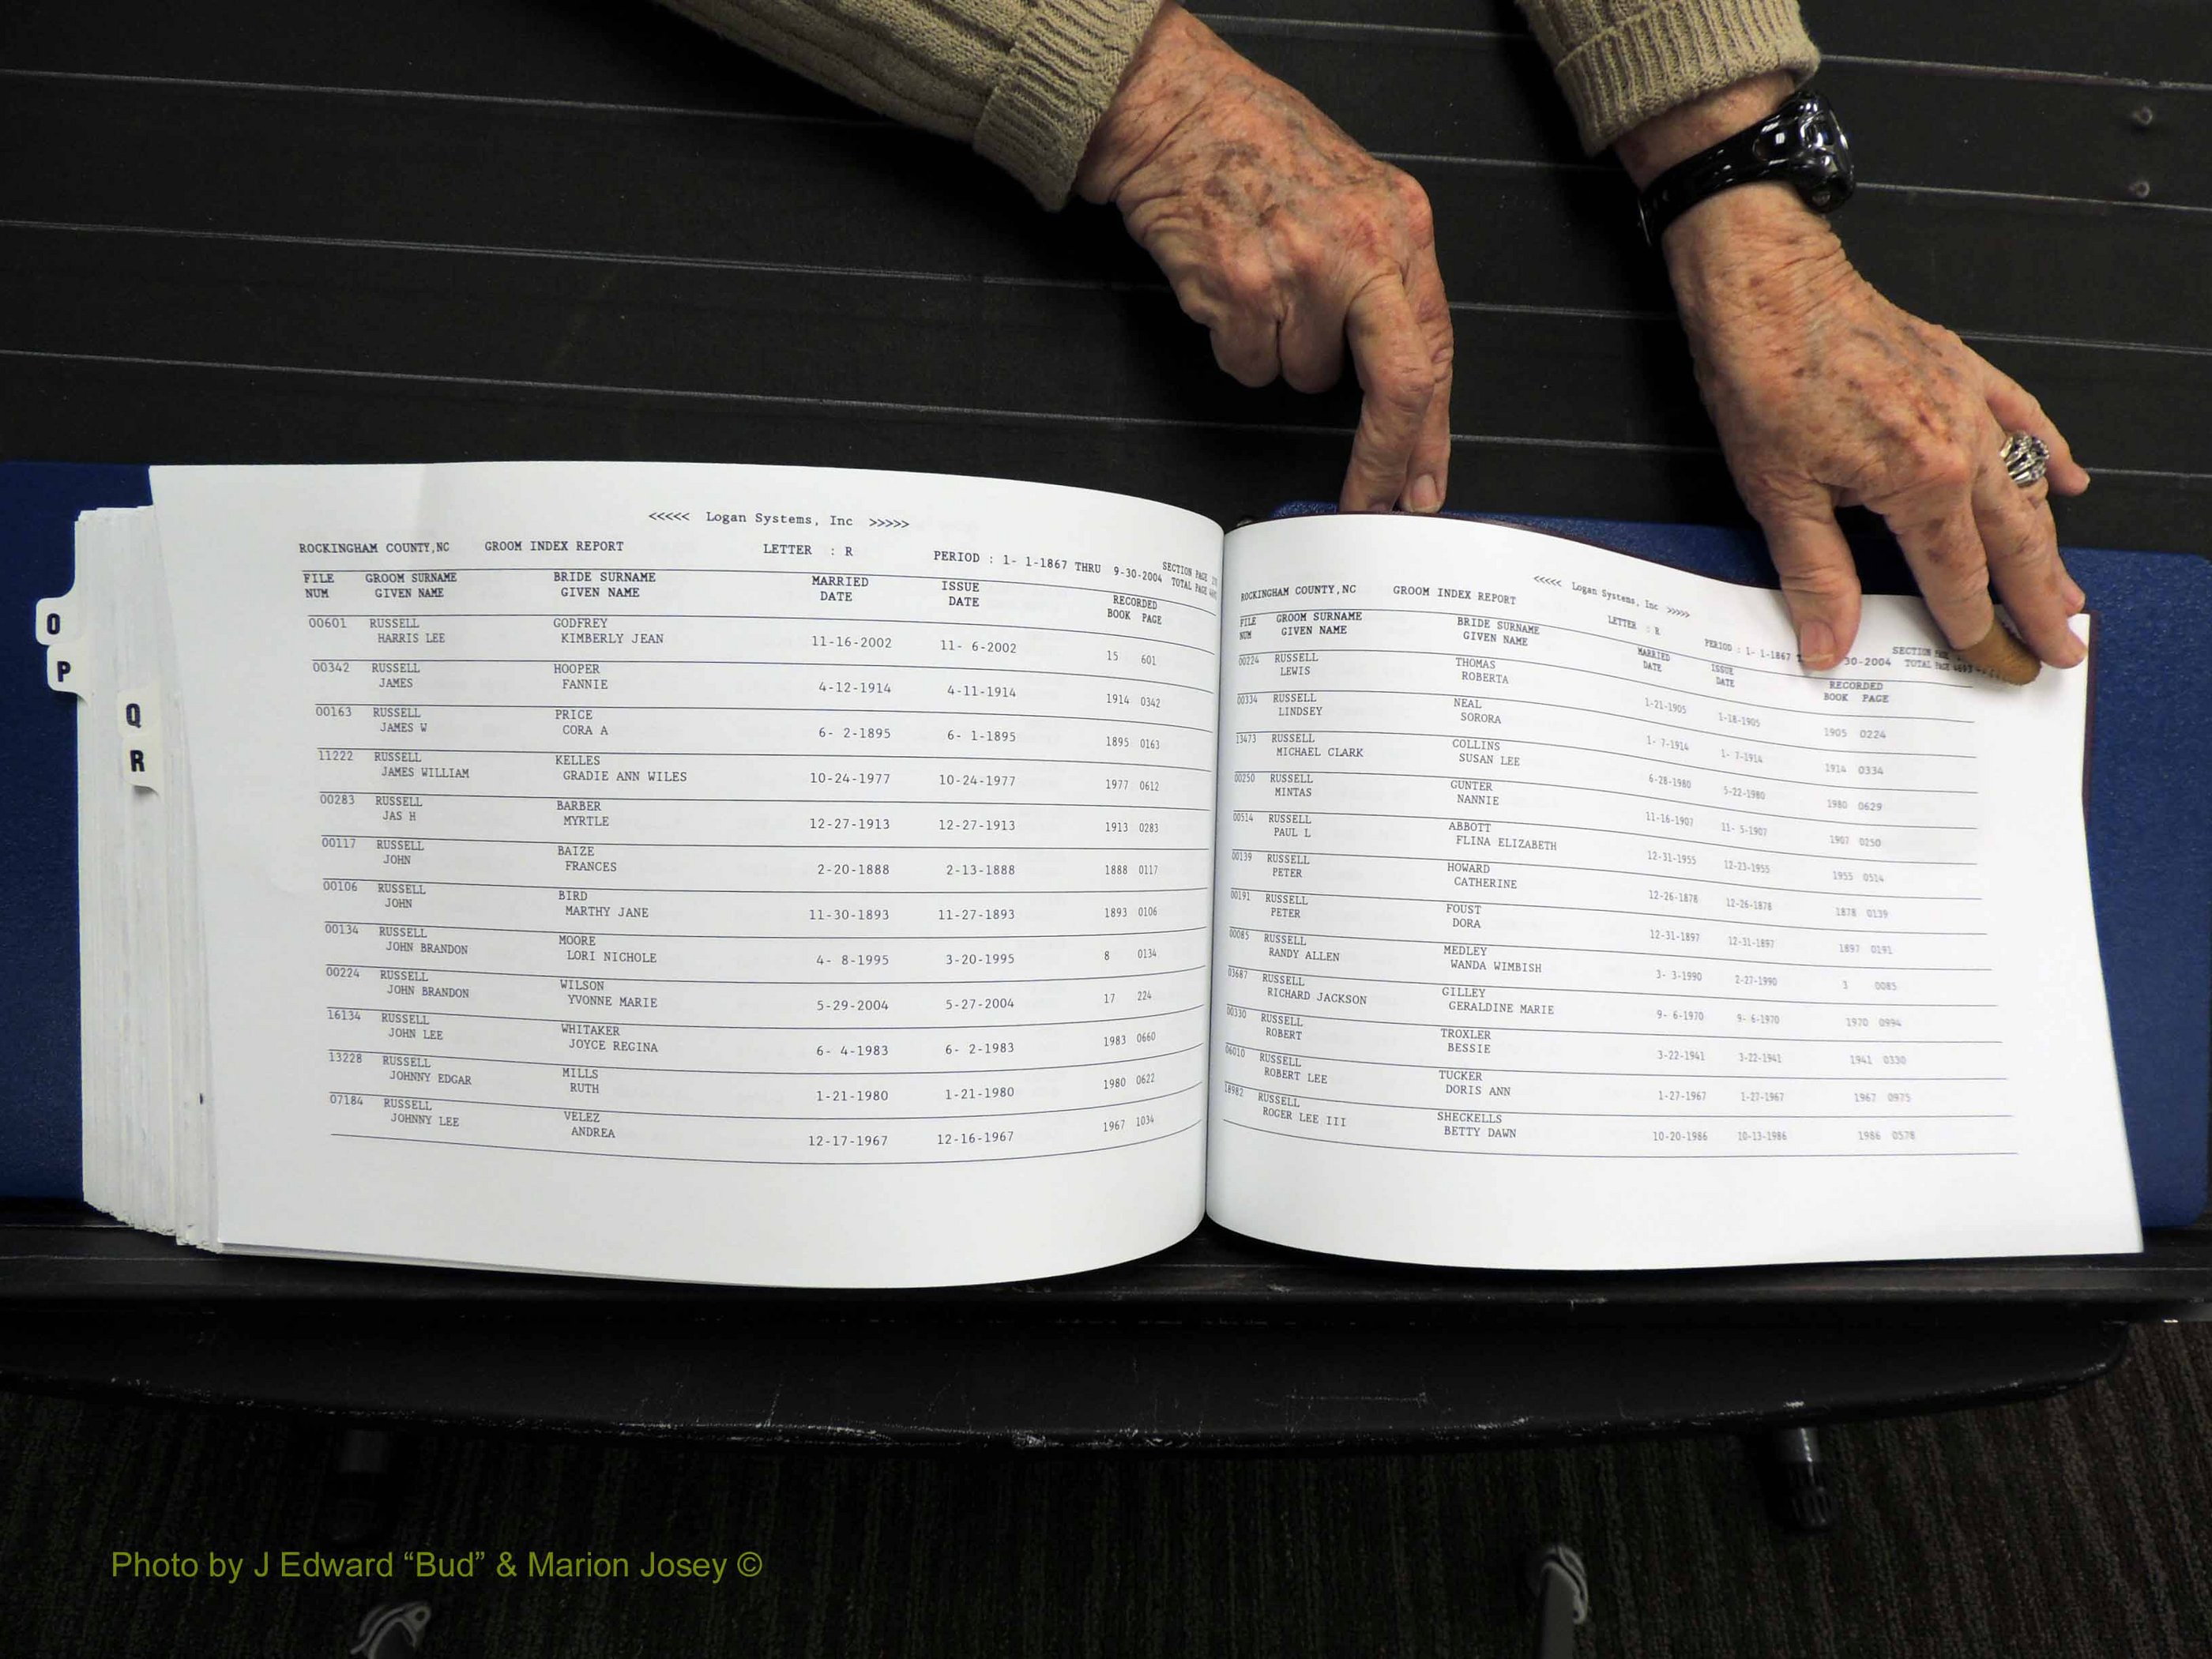 <<<<< Logan Systems, Inc >>>>>
ROCKINGHAM COUNTY,NC GROOM INDEX REPORT LETTER : R PERIOD : 1- 1-1867 THRU 9-30-2004 SECTION PAGE
TOTAL PAGE
FILE GROOM SURNAME BRIDE SURNAME MARRIED ISSUE RECORDED
NUM GIVEN NAME GIVEN NAME DATE DATE BOOK PAGE
00601 RUSSELL GODFREY
HARRIS LEE KIMBERLY JEAN 11-16-2002 11- 6-2002 15 601
00342 RUSSELL HOOPER
JAMES FANNIE 4-12-1914 4-11-1914 1914 0342
00163 RUSSELL PRICE
JAMES W CORA A 6- 2-1895 6- 1-1895 1895 0163
11222 RUSSELL KELLES
JAMES WILLIAM GRADIE ANN WILES 10-24-1977 10-24-1977 1977 0612
00283 RUSSELL BARBER
JAS H MYRTLE 12-27-1913 12-27-1913 1913 0283
00117 RUSSELL BAIZE
JOHN FRANCES 2-20-1888 2-13-1888 1888 0117
00106 RUSSELL BIRD
JOHN MARTHY JANE 11-30-1893 11-27-1893 1893 0106
00134 RUSSELL MOORE
JOHN BRANDON LORI NICHOLE 4- 8-1995 3-20-1995 8 0134
00224 RUSSELL WILSON
JOHN BRANDON YVONNE MARIE 5-29-2004 5-27-2004 17 224
16134 RUSSELL WHITAKER
JOHN LEE JOYCE REGINA 6- 4-1983 6- 2-1983 1983 0660
13228 RUSSELL MILLS
JOHNNY EDGAR RUTH 1-21-1980 1-21-1980 1980 0622
07184 RUSSELL VELEZ
JOHNNY LEE ANDREA 12-17-1967 12-16-1967 1967 1034
O
P
Q
R
<<<<< Logan Systems, Inc >>>>>
ROCKINGHAM COUNTY,NC GROOM INDEX REPORT LETTER : R PERIOD : 1- 1-1867 30-2004 SECTION
TOTAL PAGE
FILE GROOM SURNAME BRIDE SURNAME MARRIED ISSUE RECORDED
NUM GIVEN NAME GIVEN NAME DATE DATE BOOK PAGE
00224 RUSSELL THOMAS
LEWIS ROBERTA 1-21-1905 1-18-1905 1905 0224
00334 RUSSELL NEAL
LINDSEY SORORA 1- 7-1914 1- 7-1914 1914 0334
13473 RUSSELL COLLINS
MICHAEL CLARK SUSAN LEE 6-28-1980 5-22-1980 1980 0629
00250 RUSSELL GUNTER
MINTAS NANNIE 11-16-1907 11- 5-1907 1907 0250
00514 RUSSELL ABBOTT
PAUL L FLINA ELIZABETH 12-31-1955 12-23-1955 1955 0514
00139 RUSSELL HOWARD
PETER CATHERINE 12-26-1878 12-26-1878 1878 0139
00191 RUSSELL FOUST
PETER DORA 12-31-1897 12-31-1897 1897 0191
00085 RUSSELL MEDLEY
RANDY ALLEN WANDA WIMBISH 3- 3-1990 2-27-1990 3 0085
03687 RUSSELL GILLEY
RICHARD JACKSON GERALDINE MARIE 9- 6-1970 9- 6-1970 1970 0994
00330 RUSSELL TROXLER
ROBERT BESSIE 3-22-1941 3-22-1941 1941 0330
06010 RUSSELL TUCKER
ROBERT LEE DORIS ANN 1-27-1967 1-27-1967 1967 0975
18982 RUSSELL SHECKELLS
ROGER LEE III BETTY DAWN 10-20-1986 10-13-1986 1986 0578
Photo by J Edward “Bud” & Marion Josey ©